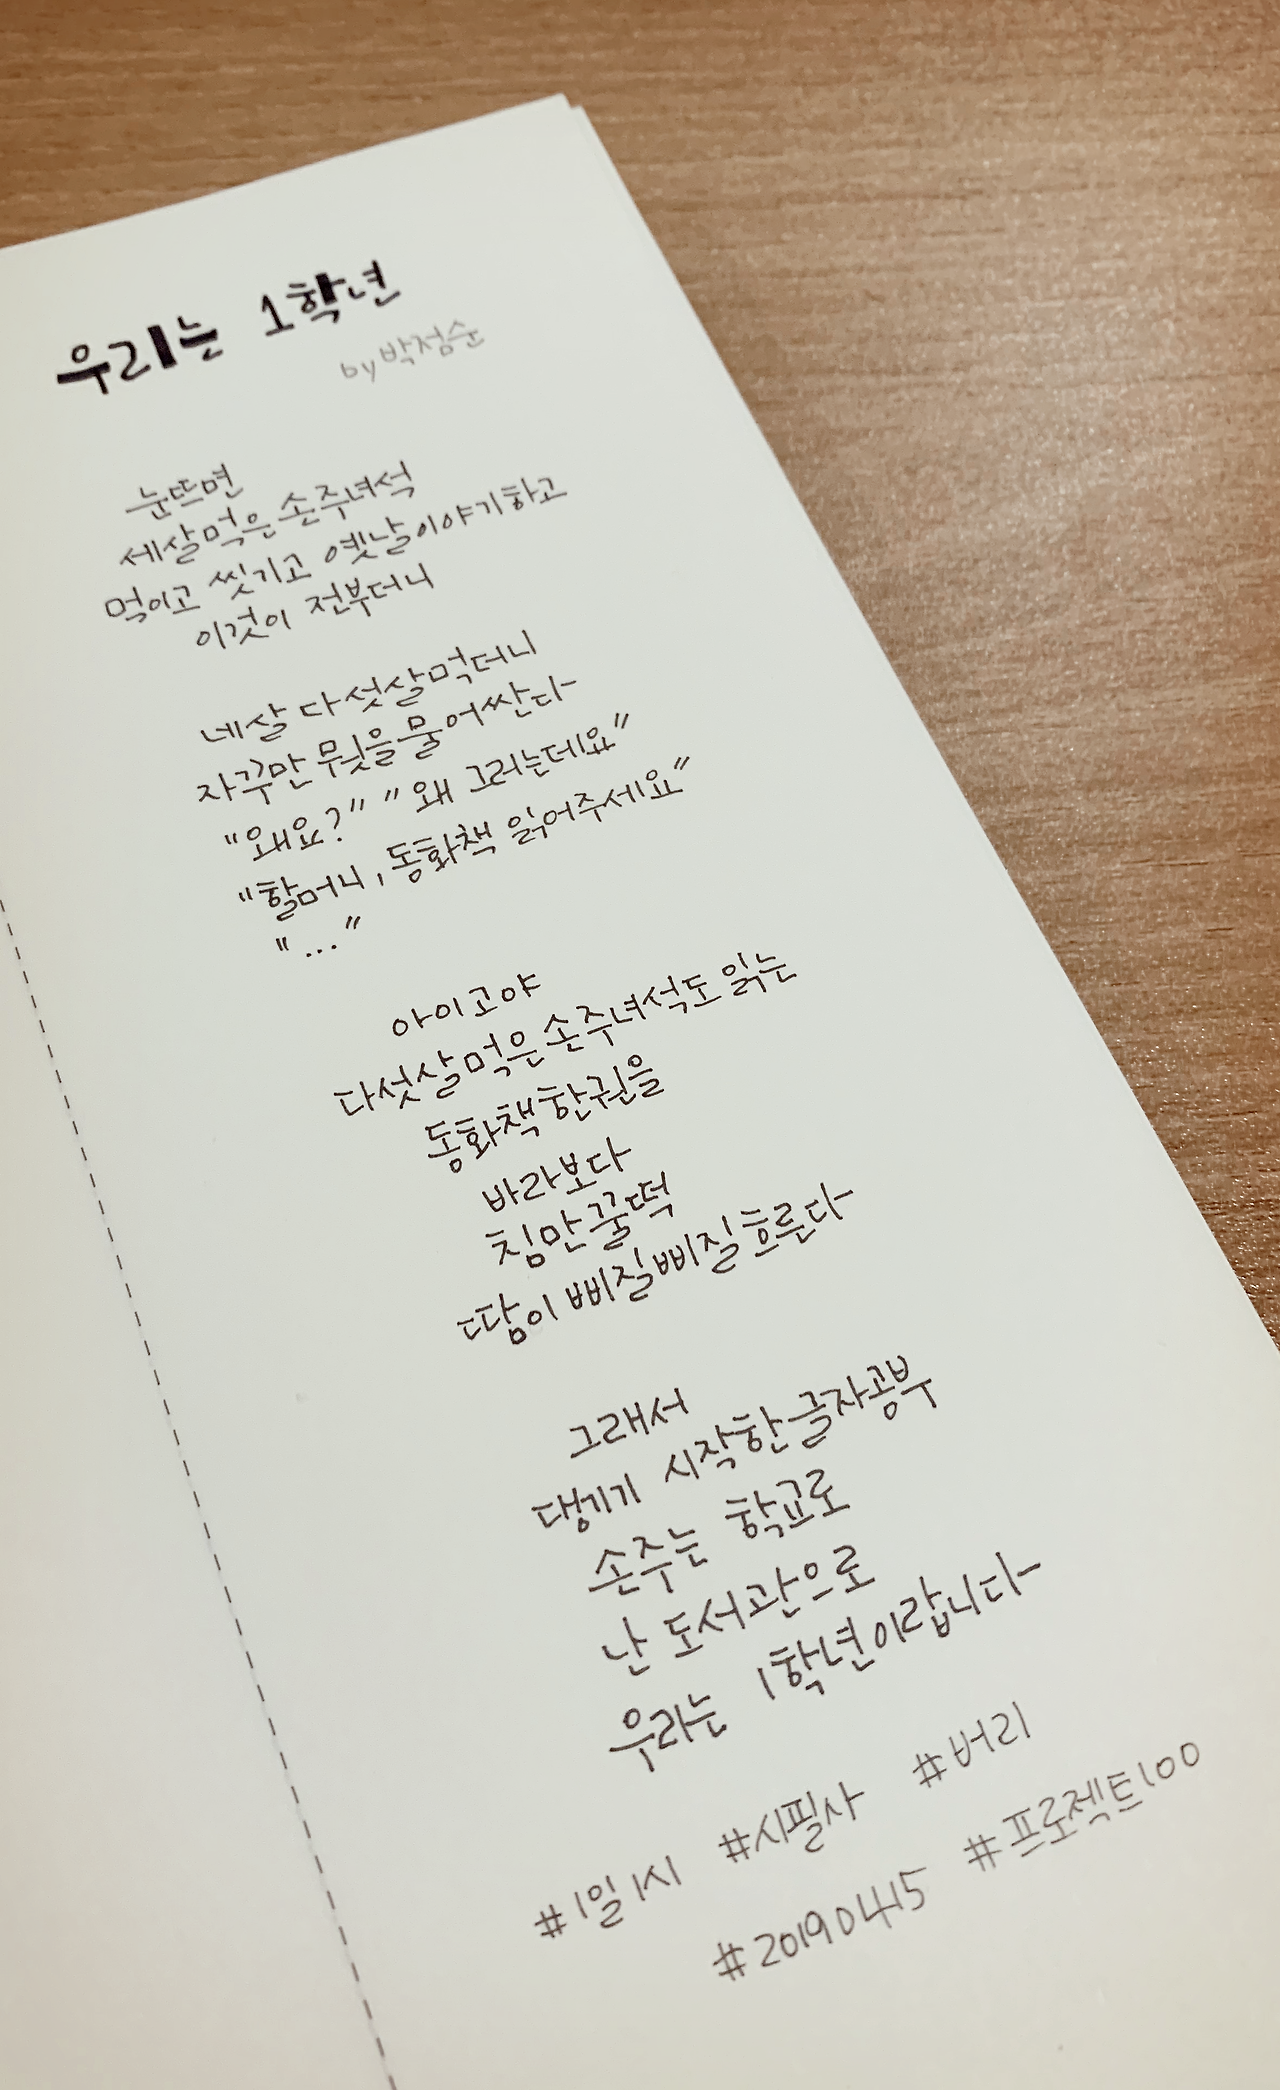 우리는 1학년
by 박점순
눈뜨면
세살먹은 손주녀석
먹이고 씻기고 옛날이야기하고
이것이 전부더니
네살 다섯살먹더니
자꾸만 뭣을 물어싼다
"왜요?" "왜 그러는데요"
"할머니, 동화책 읽어주세요"
"..."
아이고야
다섯살먹은 손주녀석도 읽는
동화책 한권을
바라보다
침만 꿀떡
땀이 삐질삐질 흐른다
그래서
댕기기 시작한 글자공부
손주는 학교로
난 도서관으로
우리는 1학년이랍니다
#1일1시 #시필사 #버리
#20190415 #프로젝트100